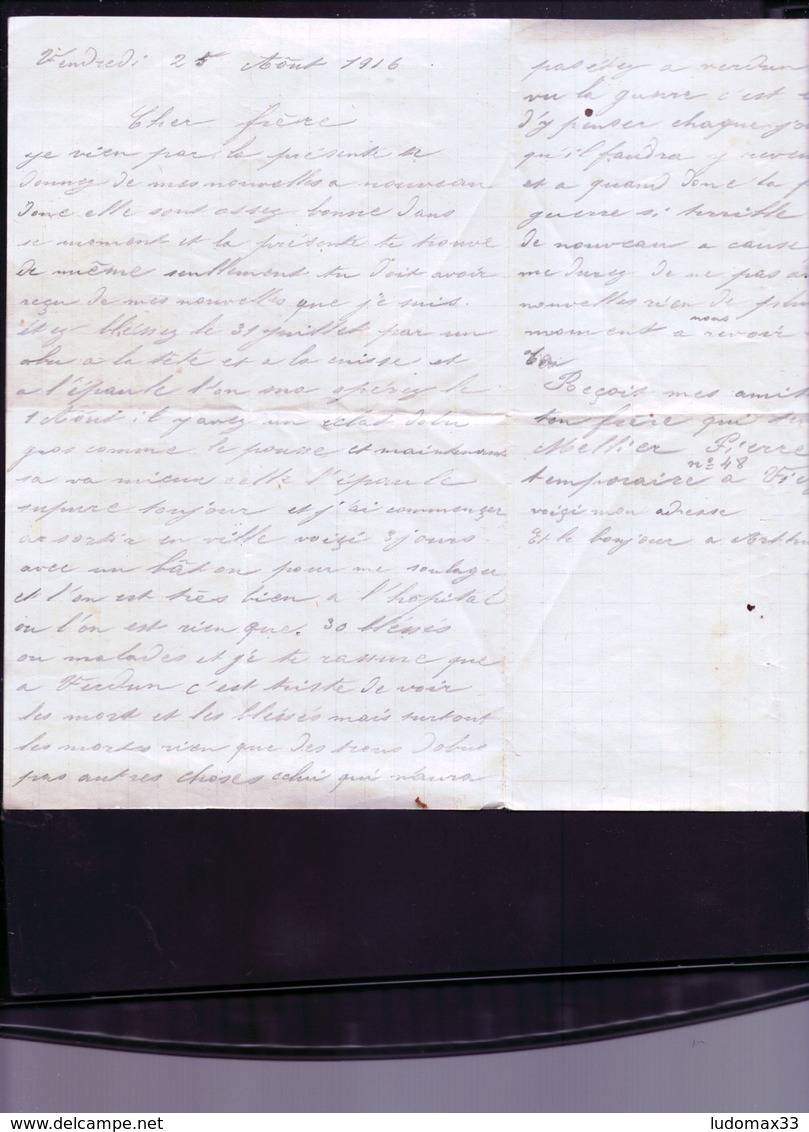 Vendredi 25 Août 1916
Cher frère
je vien par la présente te
donnez de mes nouvelles a nouveau
donc elle sont assez bonne dans
se moment et la présente te trouve
de même seullement tu doit avoir
reçu de mes nouvelles que je suis
étez bléssez le 31 juillet par un
obu a la tête et a la cuisse et
a l'épaule l'on ma opérez le
1 Août il y avez un éclat dobu
gros comme le pousse et maintenant
sa va mieux celle l'épaule
supure toujour et j'ai commencer
a sortir en ville voiçi 3 jours
avec un bâton pour me soulager
et l'on est très bien a l'hopital
ou l'on est rien que 30 bléssés
ou malades et je te rassure que
a Verdun c'est triste de voir
les mort et les bléssés mais surtout
les mortes rien que des trous dobus
pas autres choses celui qui naura
pas étez a verdun
vu la guerre c'est
d'y penser chaque
qu'il faudra y
et a quand donc la
guerre si terrible
de nouveau a cause
me durez de ne pas
nouvelles rien de
moment a nous revoir
Reçoit mes
ton frère qui
Mellier Pierre
temporaire n° 48 a
voiçi mon adresse
Et le bonjour a
ludomax33